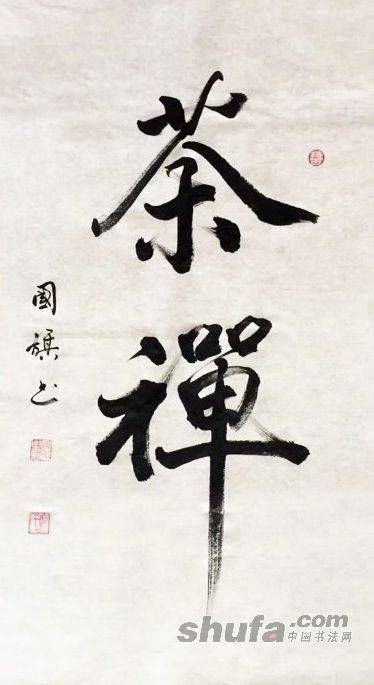 茶禪
國旗书
shufa.com
中国书法网